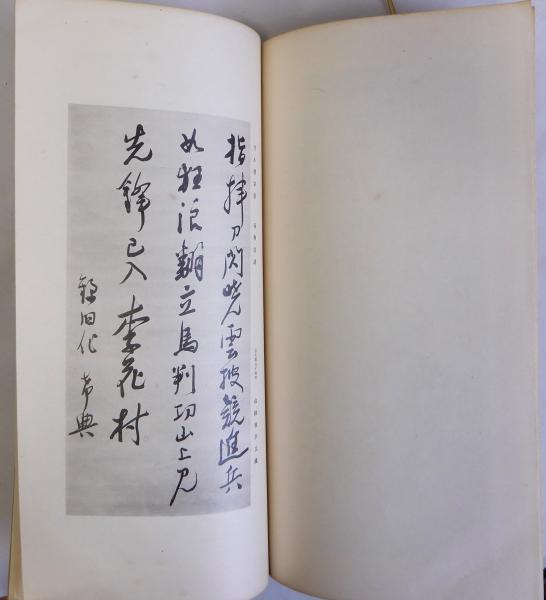 指揮刀閃曉雲披競進兵
如狂浪翻立馬判功山上見
先鋒已入李花村
錄旧作 希典